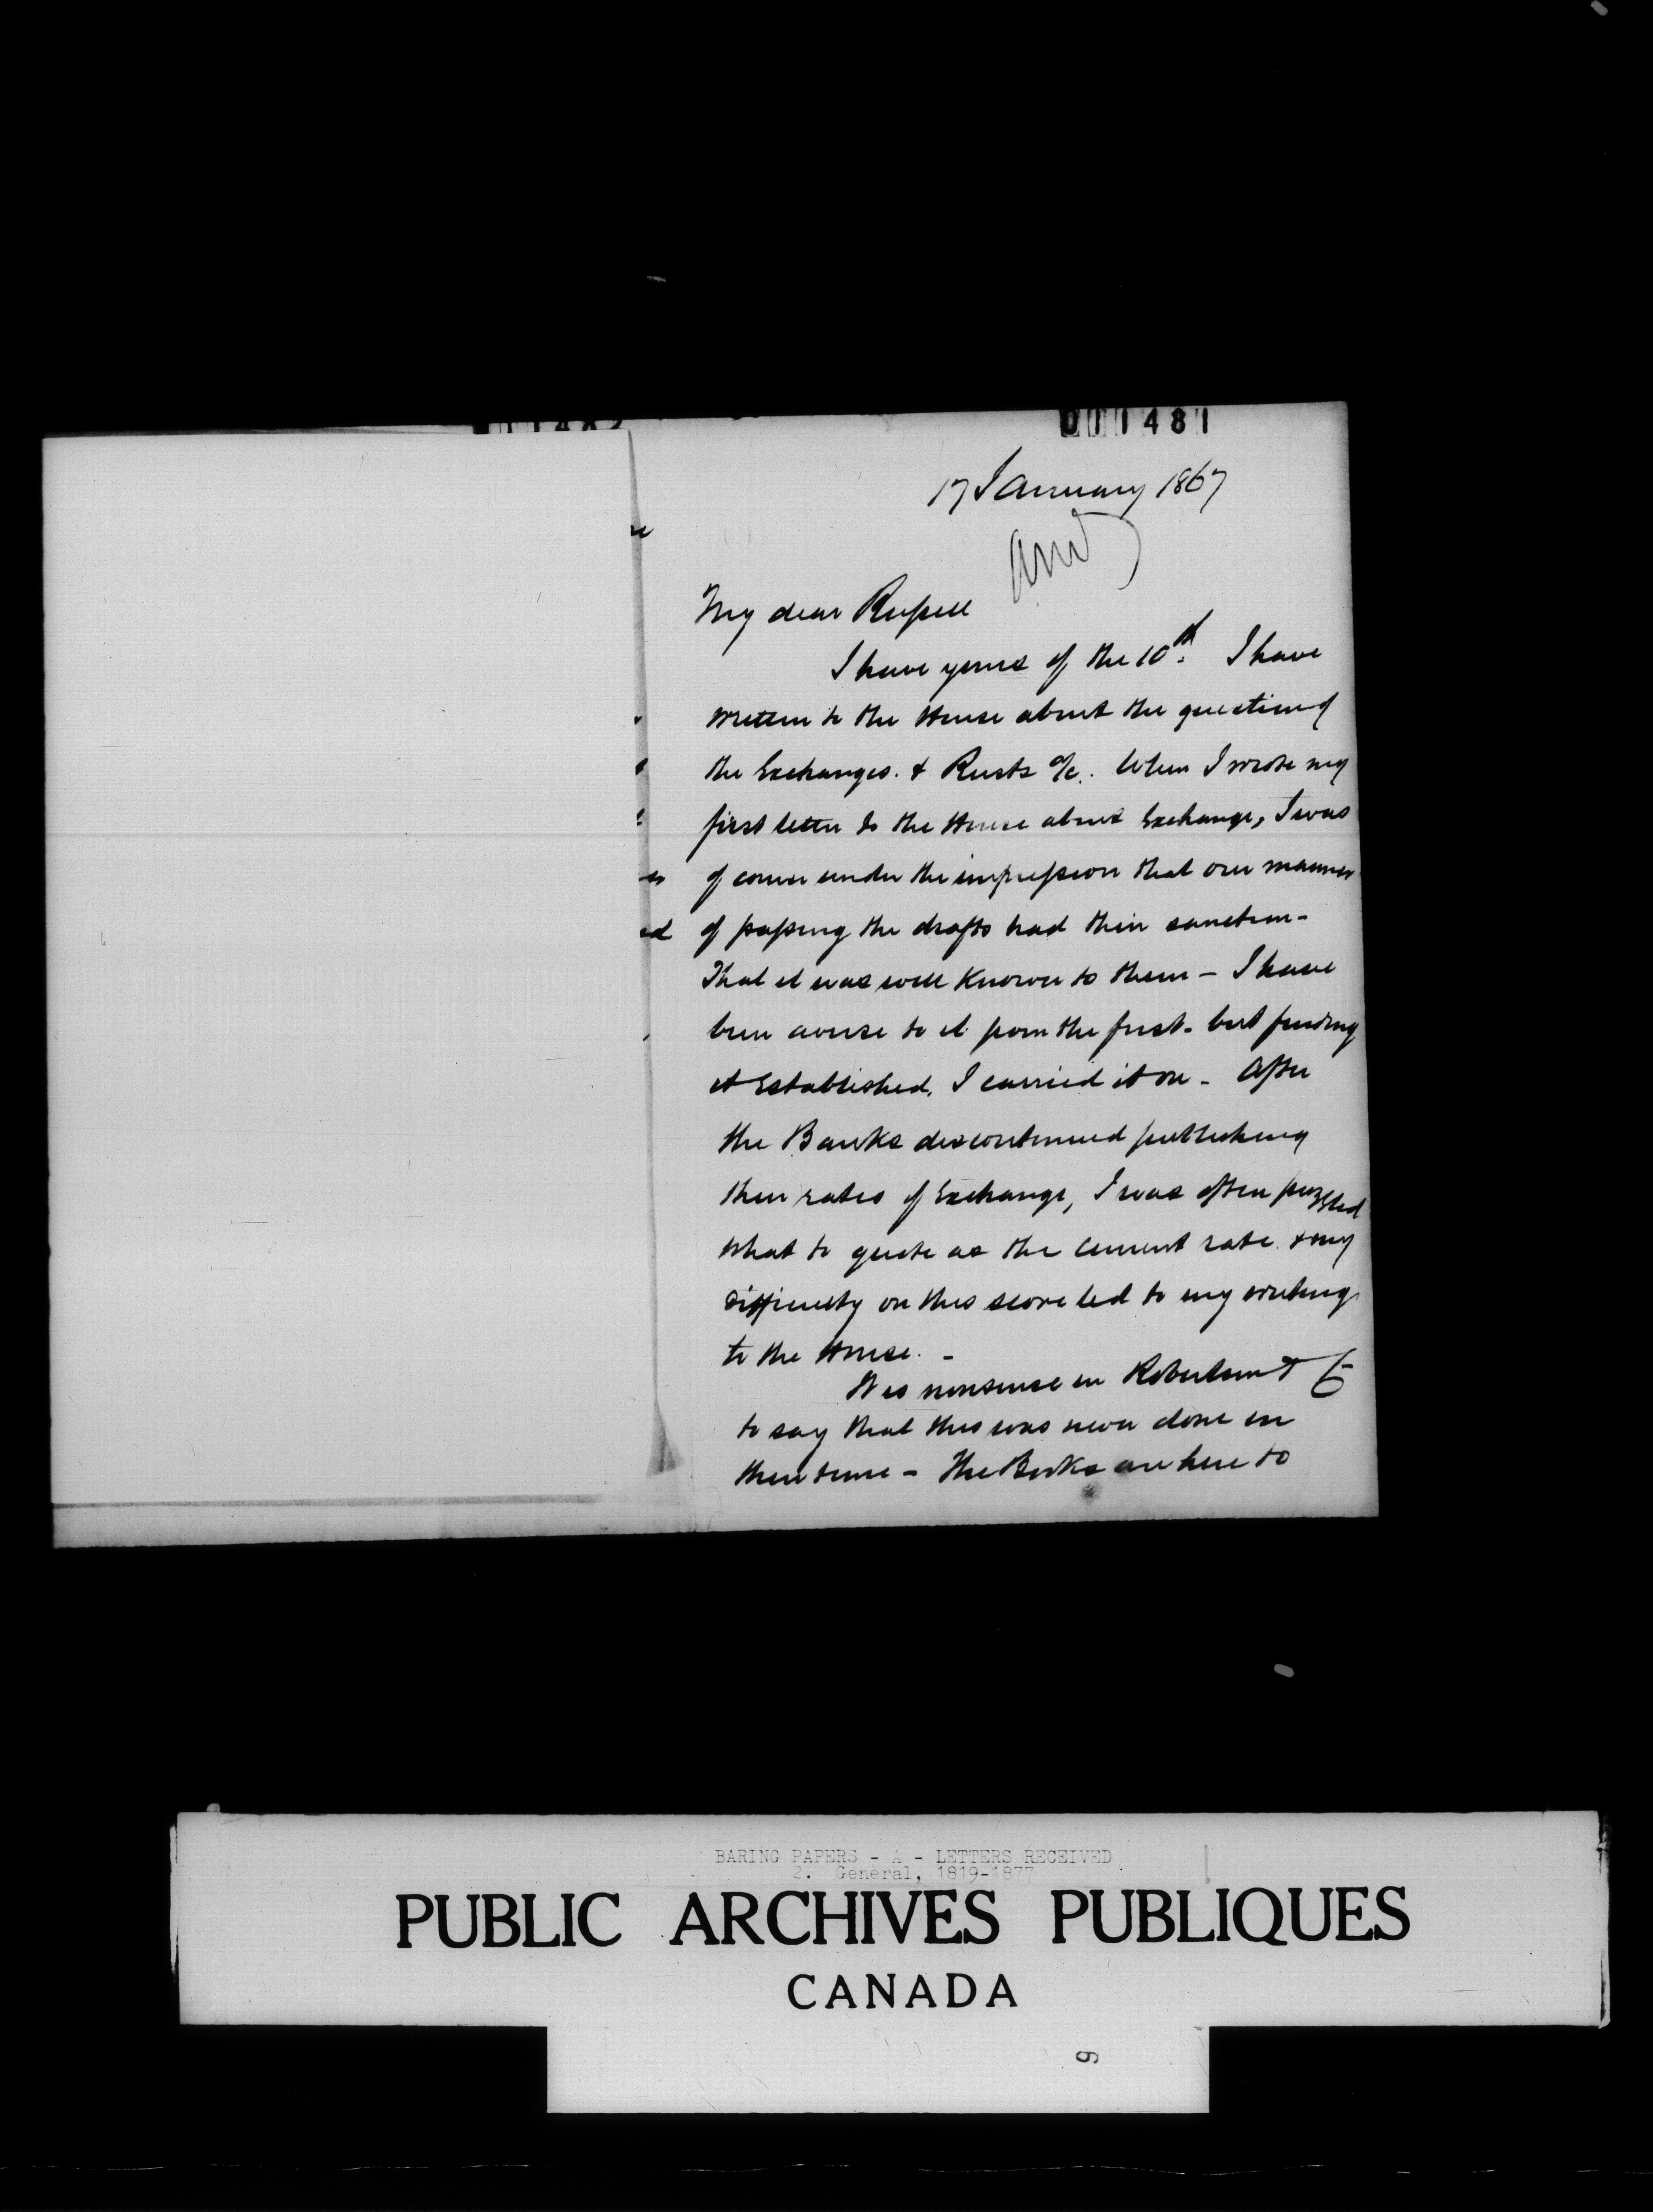 011481
17 January 1867
My dear Russell
I have yours of the 10th. I have
written to the House about the question of
the Exchanges. & Rusts a/c. When I wrote my
first letter to the House about Exchange, I was
of course under the impression that our manner
of passing the drafts had their sanction -
That it was well known to them - I have
been averse to it from the first - but finding
it Established, I carried it on - After
the Banks discontinued publishing
their rates of Exchange, I was often puzzled
what to quote as the current rate & my
difficulty on this score led to my writing
to the House. -
It is nonsense in Robertson &
to say that this was never done in
their time - The Books are here to
ed
BARING PAPERS - A - LETTERS RECEIVED
2. General, 1819-1877
PUBLIC ARCHIVES PUBLIQUES
CANADA
9